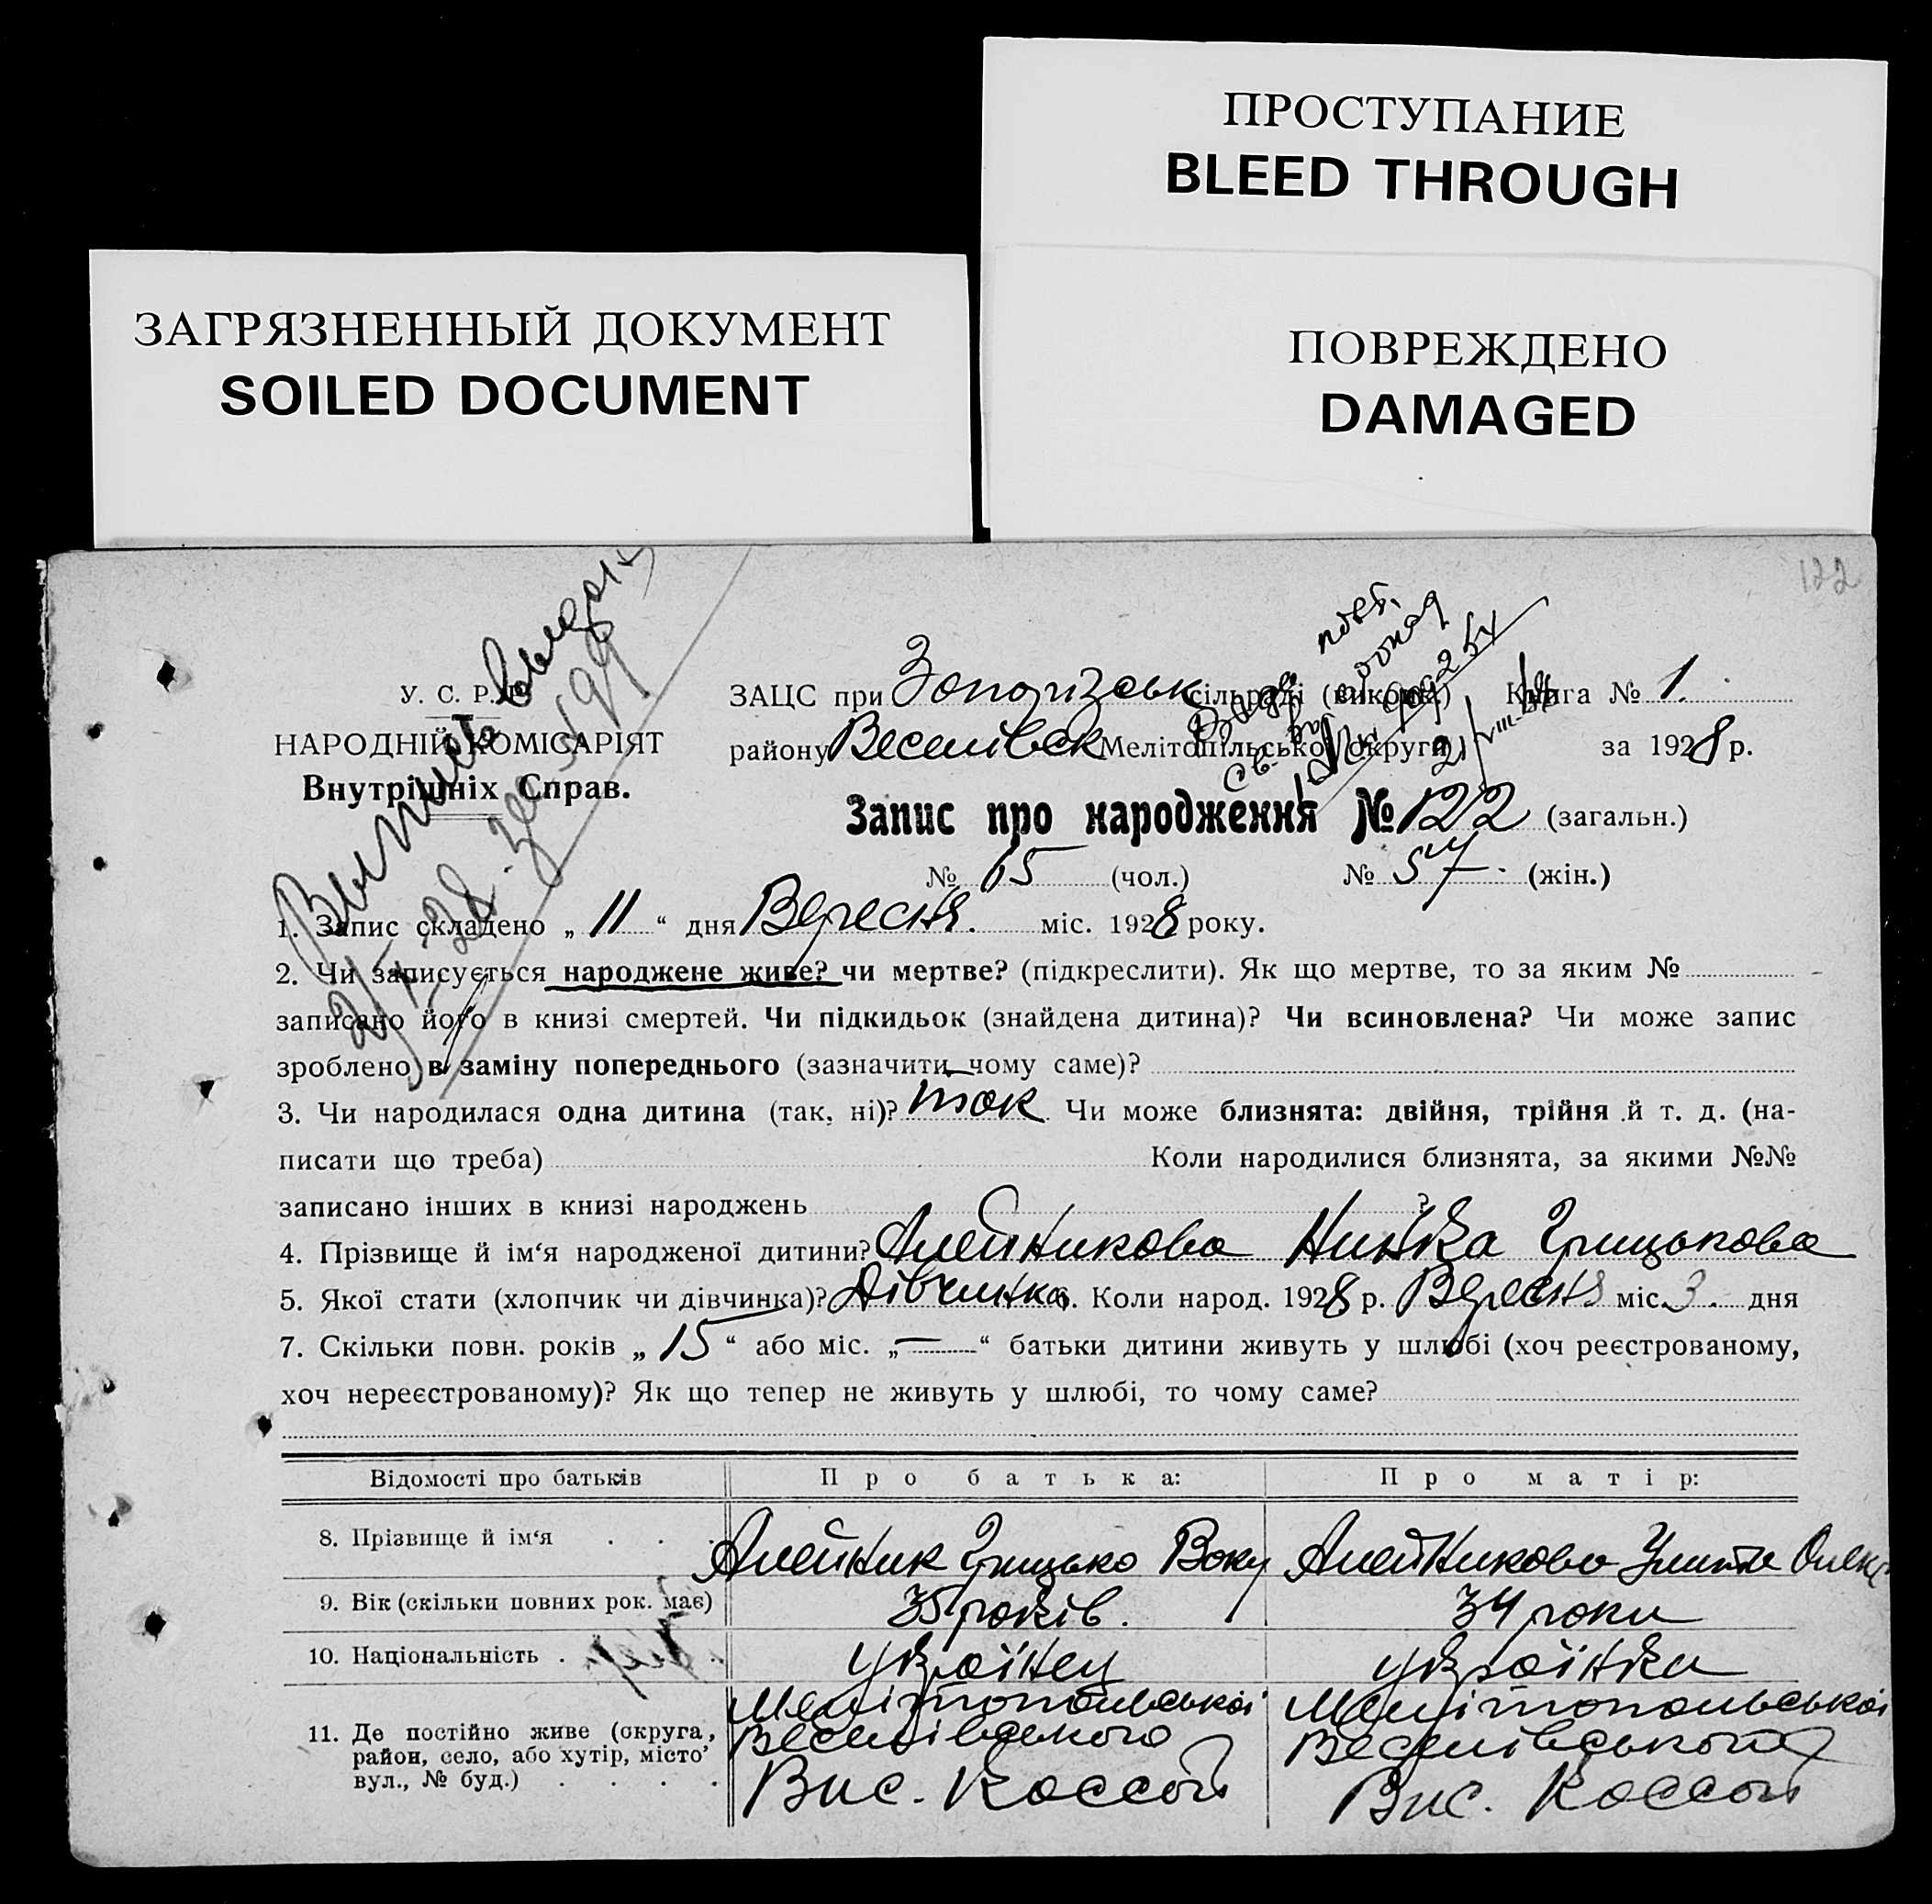 ПРОСТУПАНИЕ
BLEED THROUGH
ЗАГРЯЗНЕННЫЙ ДОКУМЕНТ
SOILED DOCUMENT
ПОВРЕЖДЕНО
DAMAGED
122
У. С. Р. Р.
НАРОДНІЙ КОМІСАРІЯТ
Внутрішніх Справ.
ЗАЦС при Запорізськ сільраді (викона.) Книга № 1.
району Веселівськ Мелітопільської округи за 1928 р.
Запис про народження № 122 (загальн.)
№ 65 (чол.) № 57 (жін.)
1. Запис складено „ 11 “ дня Вересня. міс. 1928 року.
2. Чи записується народжене живе? чи мертве? (підкреслити). Як що мертве, то за яким №
записано його в книзі смертей. Чи підкидьок (знайдена дитина)? Чи всиновлена? Чи може запис
зроблено в заміну попереднього (зазначити чому саме)?
3. Чи народилася одна дитина (так, ні)? так Чи може близнята: двійня, трійня й т. д. (на-
писати що треба) Коли народилися близнята, за якими №№
записано інших в книзі народжень ?
4. Прізвище й ім‘я народженої дитини? Алейникова Нинка Грицькова
5. Якої стати (хлопчик чи дівчинка)? Дівчинка 6. Коли народ. 1928 р. Вересня міс. 3. дня
7. Скільки повн. років „ 15 “ або міс. „ — “ батьки дитини живуть у шлюбі (хоч реєстрованому,
хоч нереєстрованому)? Як що тепер не живуть у шлюбі, то чому саме?
Відомості про батьків Про батька: Про матір:
8. Прізвище й ім‘я . . . Алейник Грицько Алейникова
9. Вік (скільки повних рок. має) 35 років. 34 роки
10. Національність . українец українка
11. Де постійно живе (округа, район, село, або хутір, місто, вул., № буд.) . . . .
Мелітопольської Мелітопольської
Веселівського Веселівського
Вис. Коссой Вис. Коссой